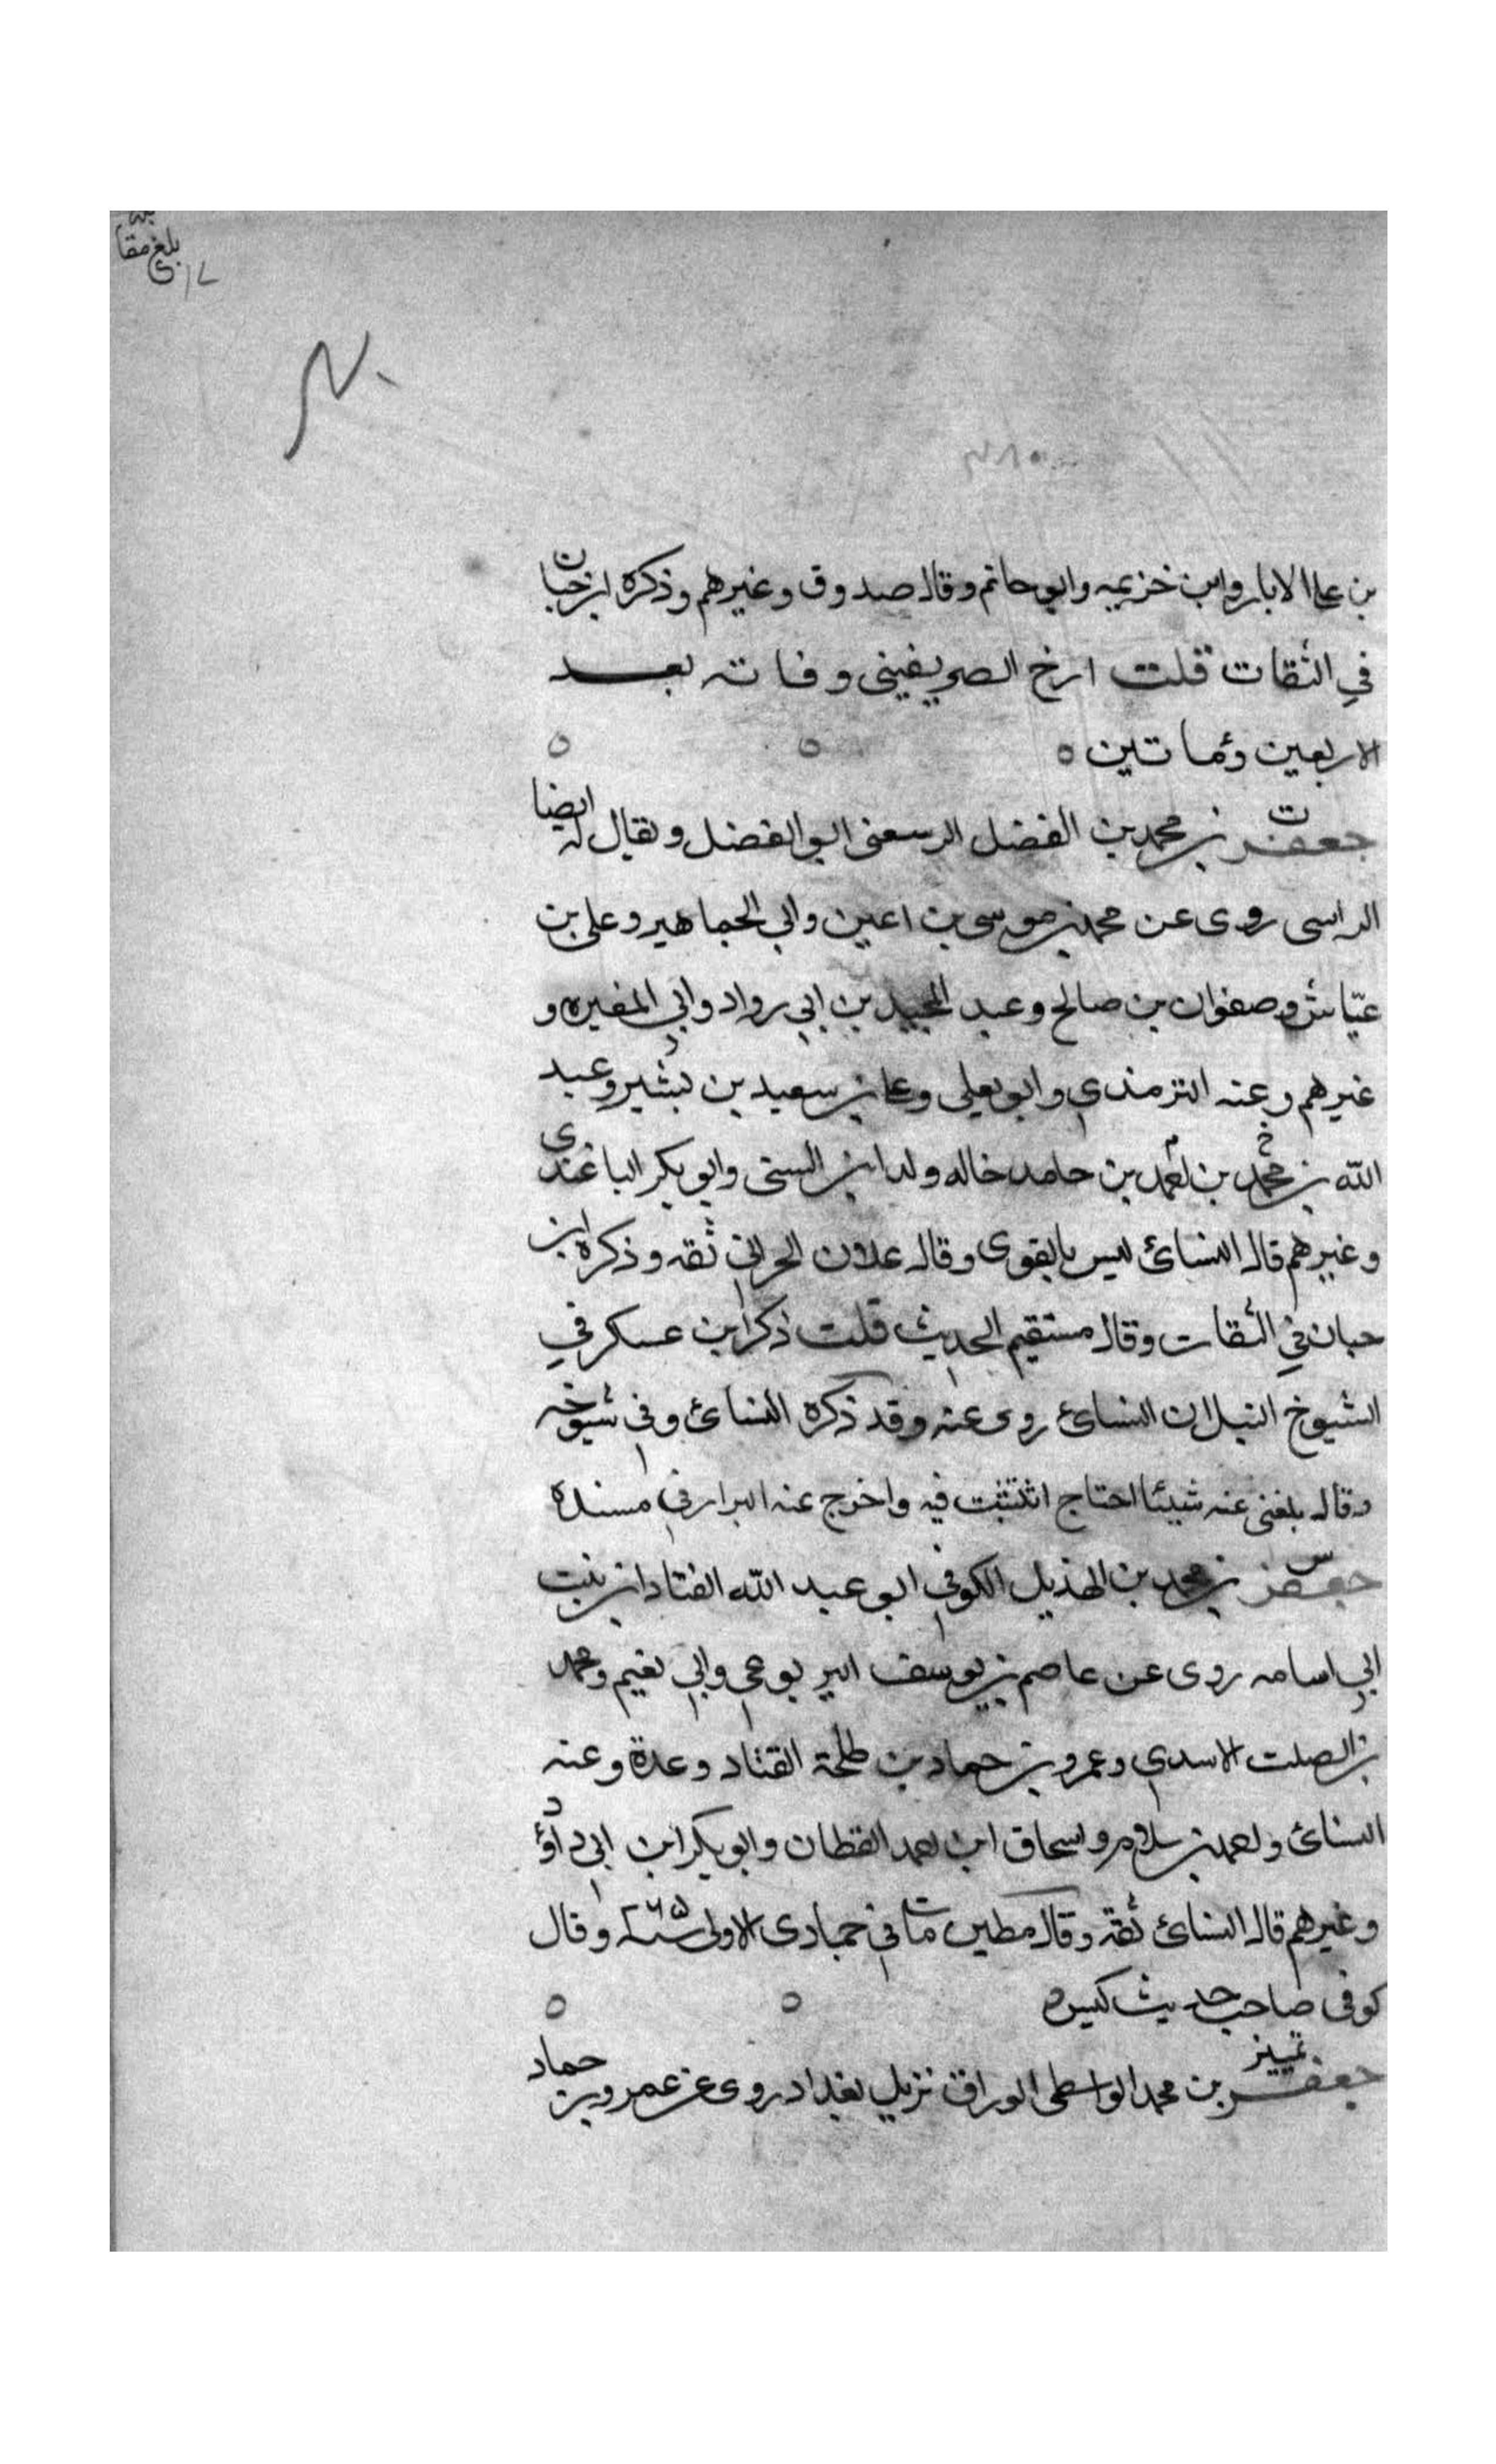 بلغ مقا
بله
بن علي الابار وابن خزيمه وابو حاتم وقال صدوق وغيرهم وذكره ابن حبان
في الثقات قلت ارخ الصريفيني وفاته بعد
الاربعين ومأتين ه
جعفر بن محمد بن الفضل الرسعني ابو الفضل ويقال له ايضا
ت
الراسي روى عن محمد بن موسى بن اعين وابي الجماهير وعلي بن
عيّاش وصفوان بن صالح وعبد المجيد بن ابي رواد وابي المغيره و
غيرهم وعنه الترمذي وابو يعلى وعلي بن سعيد بن بشير وعبد
الله بن محمد بن بن حامد خاله ولد ابن السني وابو بكر الباغندي
وغيرهم قال النسائ ليس بالقوى وقال علان الحراني ثقه وذكره ابن
حبان في الثقات وقال مستقيم الحديث قلت ذكر ابن عسكر في
الشيوخ النبل ان النسائ روى عنه وقد ذكره النسائ وفي شيوخه
وقال بلغني عنه شيئا احتاج فيه واخرج عنه البزار في مسنده
س
جعفر بن محمد بن الهذيل الكوفي ابو عبد الله القناد ابن بنت
ابي اسامه روى عن عاصم بن يوسف اليربوعي وابي نعيم ومحمد
بن الصلت الاسدي وعمرو بن حماد بن طلحة القناد وعدة وعنه
النسائ بن سلام واسحاق ابن القطان وابو بكر ابن ابي داؤد
وغيرهم قال النسائ ثقة وقال مطين مات في جمادى الاولى وقال
كوفى صاحب حديث كيس ه
تمييز
جعفر بن محمد الواسطى الوراق نزيل بغداد روى عن عمرو بن حماد